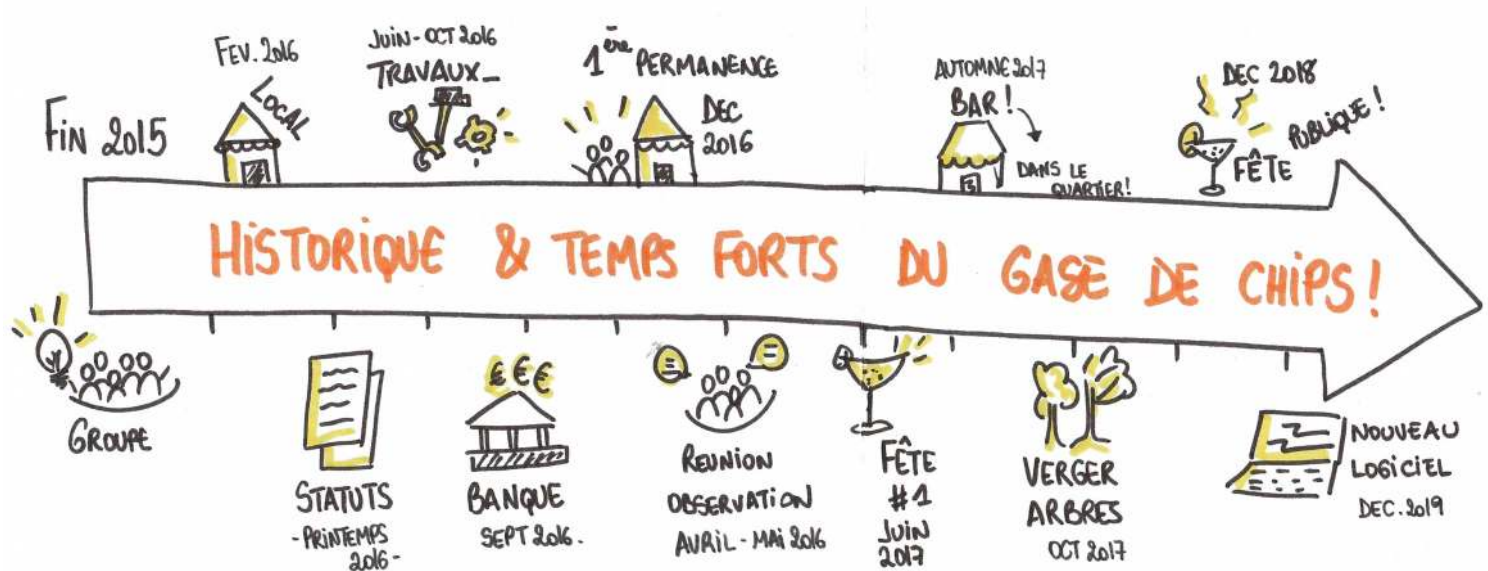 FIN 2015
FEV. 2016
LOCAL
JUIN - OCT 2016
TRAVAUX_
1ère PERMANENCE
DEC
2016
AUTOMNE 2017
BAR !
DANS LE
QUARTIER!
DEC 2018
FÊTE
PUBLIQUE !
HISTORIQUE & TEMPS FORTS DU GASE DE CHIPS !
GROUPE
STATUTS
- PRINTEMPS
2016 -
€ € €
BANQUE
SEPT 2016.
REUNION
OBSERVATION
AVRIL - MAI 2016
FÊTE
#1
JUIN
2017
VERGER
ARBRES
OCT 2017
NOUVEAU
LOGICIEL
DEC. 2019